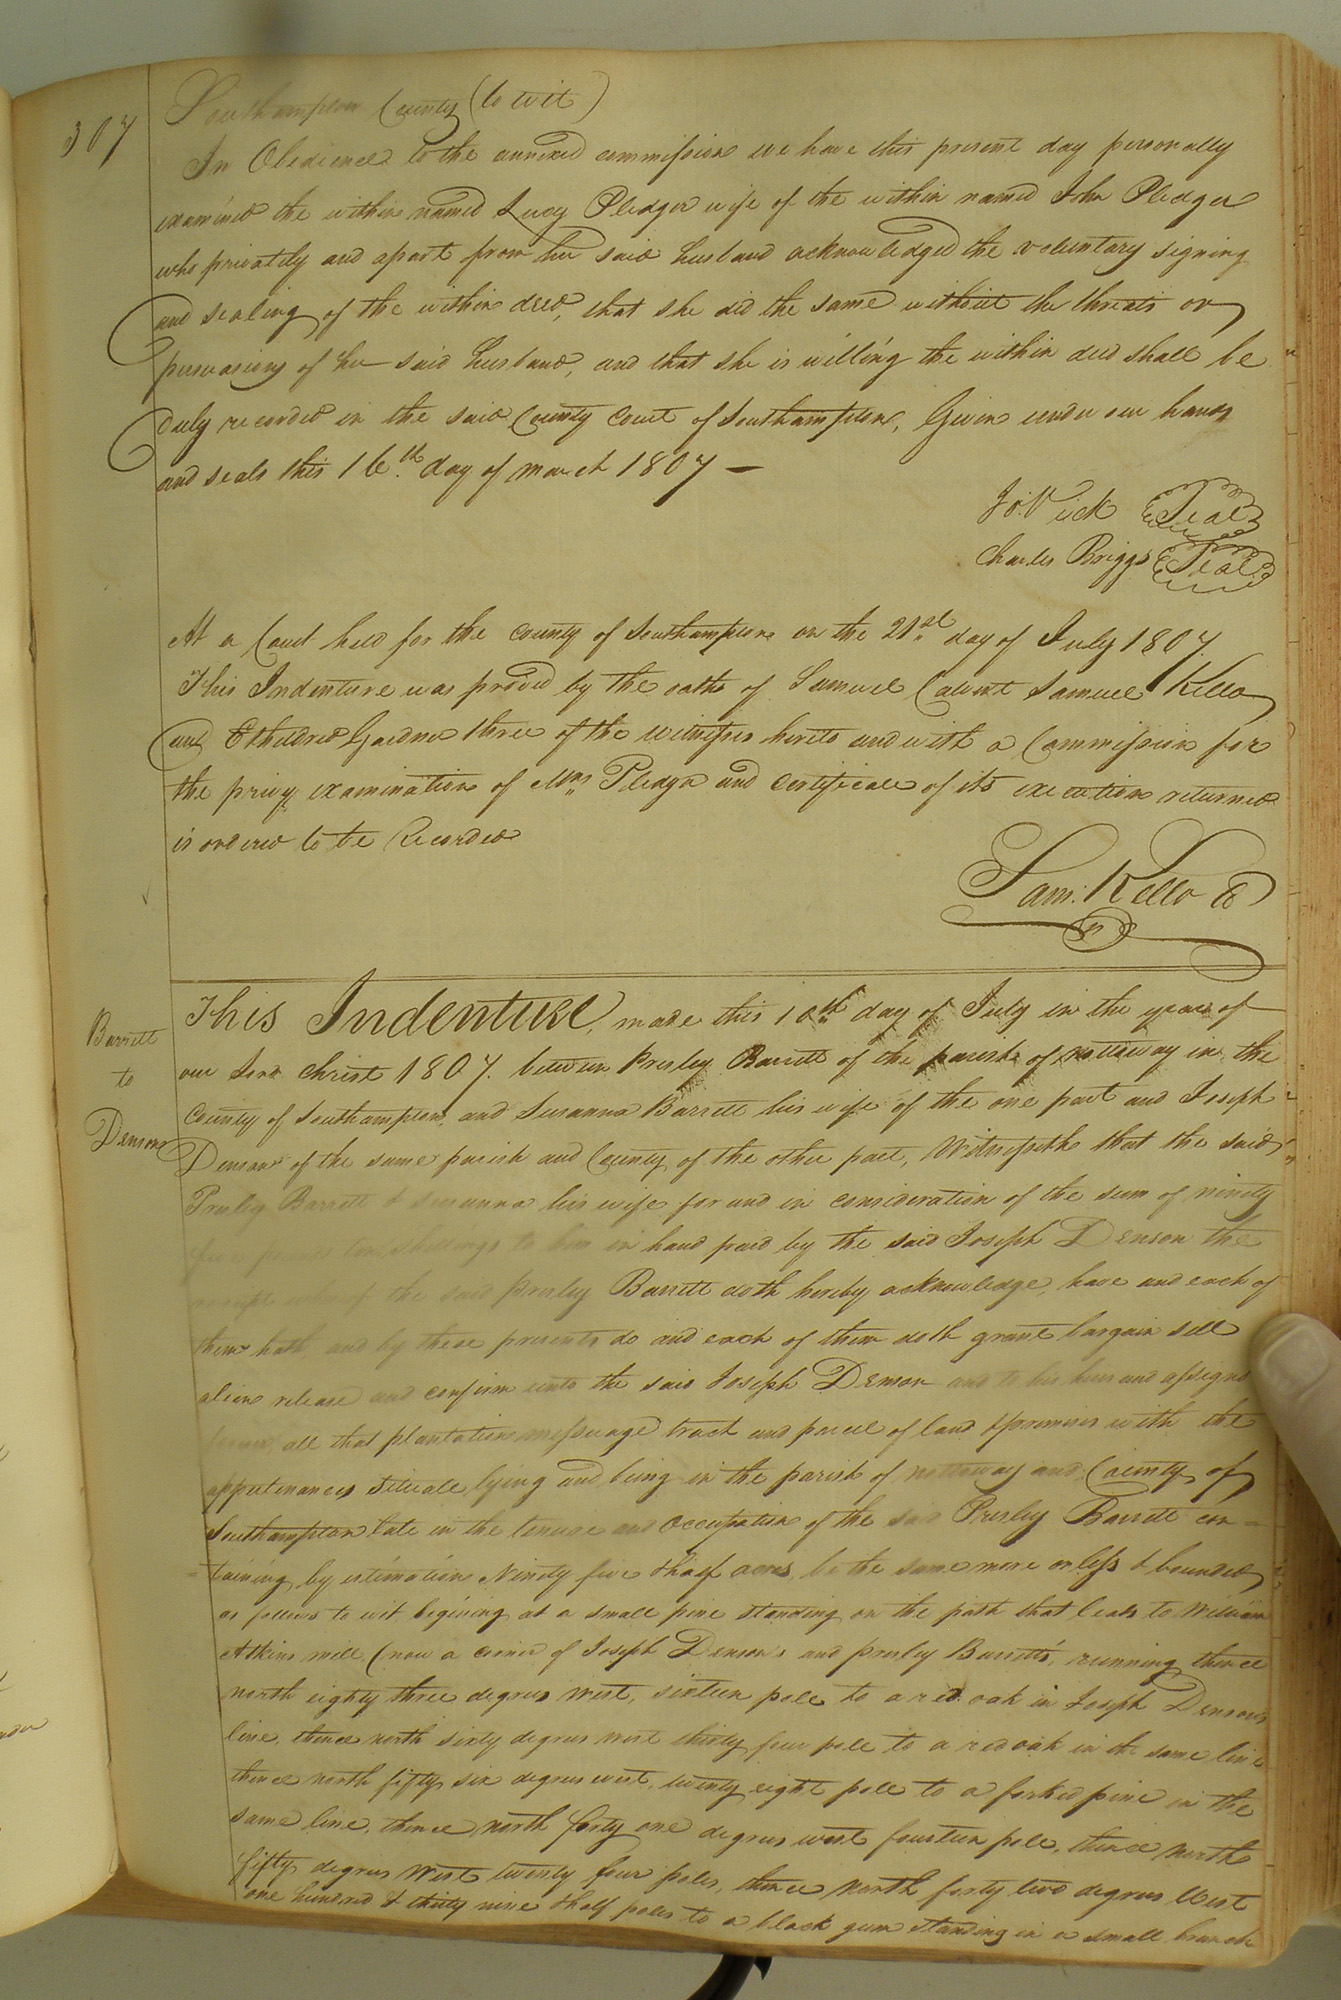 307
Southampton County (to wit)
In Obedience to the annexed commission we have this present day personally
examined the within named Lucy Pledger wife of the within named John Pledger
who privately and apart from her said husband acknowledged the voluntary signing
and sealing of the within deed, that she did the same without the threats or
persuasions of her said husband, and that she is willing the within deed shall be
duly recorded in the said County Court of Southampton, Given under our hands
and seals this 16th day of march 1807 —
Jo. Vick Seal
Charles Briggs Seal
At a Court held for the County of Southampton on the 21st day of July 1807.
This Indenture was proved by the oaths of Samuel Calvert Samuel Kello
and Etheldred Gardner three of the witnesses hereto and with a Commission for
the privy examination of Mrs Pledger and certificate of its execution returned
is ordered to be Recorded
Sam: Kello Cl
Barrett
to
Denson
This Indenture, made this 10th day of July in the year of
our Lord Christ 1807. between Presley Barrett of the parish of nottoway in the
County of Southampton, and Susanna Barrett his wife of the one part and Joseph
Denson of the same parish and County of the other part, Witnesseth that the said
Presley Barrett & Susanna his wife for and in consideration of the sum of ninety
five pounds ten shillings to him in hand paid by the said Joseph Denson the
receipt whereof the said Presley Barrett doth hereby acknowledge, have and each of
them hath and by these presents do and each of them doth grant bargain sell
alien release and confirm unto the said Joseph Denson and to his heirs and assigns
forever, all that plantation messuage tract and parcel of land & premises with the
appurtenances situate, lying and being in the parish of nottoway and County of
Southampton late in the tenure and Occupation of the said Presley Barrett con=
=taining by estimation Ninety five & half acres, be the same more or less & bounded
as follows to wit begining at a small pine standing on the path that leads to William
Atkins mill, (now a corner of Joseph Denson's and Presley Barrett's, running thence
north eighty three degrees West, sixteen pole to a red oak in Joseph Denson's
line, thence north sixty degrees west thirty four pole to a red oak in the same line
thence north fifty six degrees west, twenty eight pole to a forked pine in the
same line, thence north forty one degrees west fourteen pole, thence north
fifty degrees West twenty four poles, thence North forty two degrees West
one hundred & thirty nine & half poles to a black gum standing in a small branch